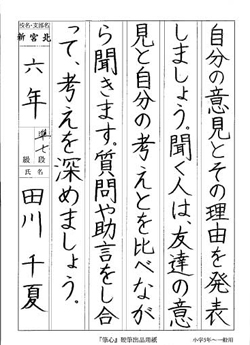 自分の意見とその理由を発表
しましょう。聞く人は、友達の意
見と自分の考えとを比べなが
ら聞きます。質問や助言をし合
って、考えを深めましょう。
校名・支部名
新宮北
六年
準七
級 段
氏名
田川千夏
『筆心』硬筆出品用紙
小学3年〜一般用